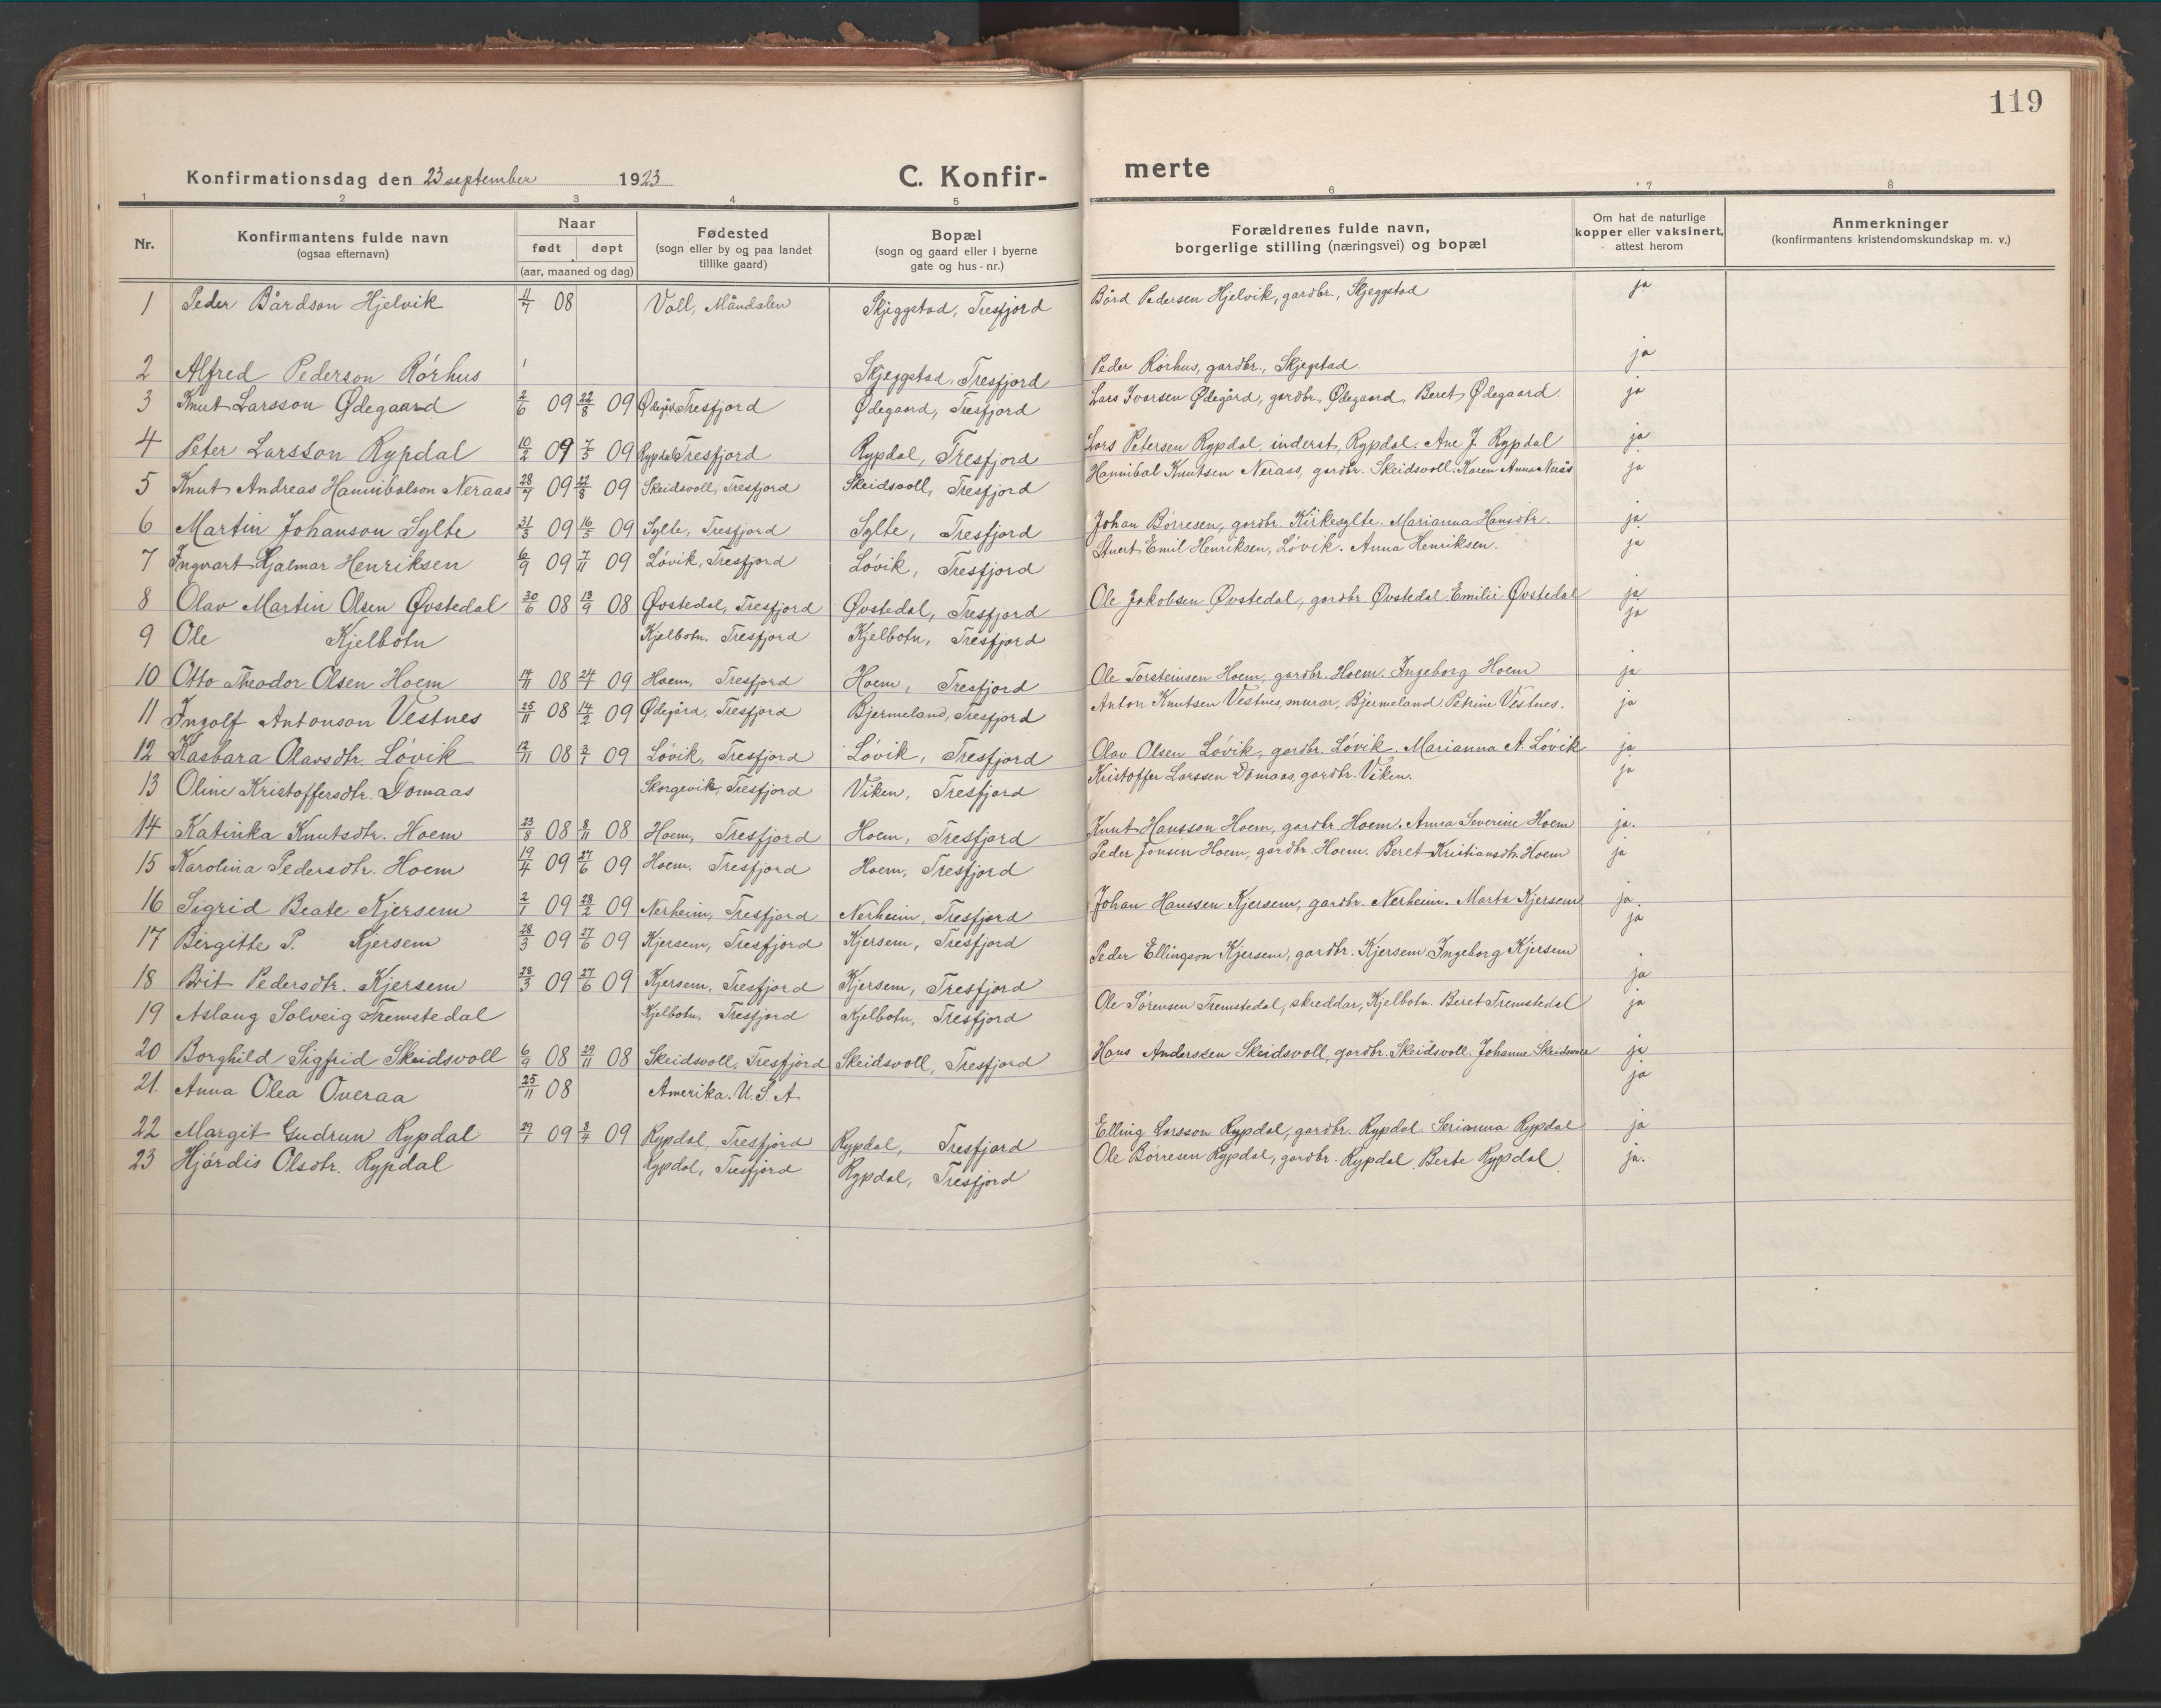 119
Konfirmationsdag den 23 september 1923 C. Konfir- merte
1 2 3 4 5 6 7 8
Nr. Konfirmantens fulde navn (ogsaa efternavn) Naar født døpt (aar, maaned og dag) Fødested (sogn eller by og paa landet tillike gaard) Bopæl (sogn og gaard eller i byerne gate og hus-nr.) Forældrenes fulde navn, borgerlige stilling (næringsvei) og bopæl Om hat de naturlige kopper eller vaksinert, attest herom Anmerkninger (konfirmantens kristendomskundskap m. v.)
1 Peder Bårdson Hjelvik 11/7 08 Voll, Måndalen Skjeggstad, Tresfjord Bård Pedersen Hjelvik, gardbr., Skjeggstad ja
2 Alfred Pederson Rórhus Skjeggstad, Tresfjord Peder Rórhus, gardbr., Skjegstad. ja
3 Knut Larsson Ødegaard 2/6 09 22/8 09 Ødegård Tresfjord Ødegaard, Tresfjord Lars Ivarsen Ødegård, gardbr., Ødegaard, Beret Ødegaard. ja
4 Peter Larsson Rypdal 10/2 09 7/3 09 Rypdal Tresfjord Rypdal, Tresfjord Lars Petersen Rypdal, inderst, Rypdal. Ane J. Rypdal ja
5 Knut Andreas Hannibalson Neraas 28/7 09 22/8 09 Skeidsvoll, Tresfjord Skeidsvoll, Tresfjord Hannibal Knutsen Neraas, gardbr. Skeidsvoll. Karen Anna Nerås ja
6 Martin Johanson Sylte 31/3 09 16/5 09 Sylte, Tresfjord Sylte, Tresfjord Johan Bórresen, gardbr. Kirkesylte. Marianna Hansdtr. ja
7 Ingvart Hjalmar Henriksen 6/9 09 7/11 09 Lóvik, Tresfjord Lóvik, Tresfjord Emil Henriksen, Lóvik. Anna Henriksen. ja
8 Olav Martin Olsen Øvstedal 30/6 08 13/9 08 Øvstedal, Tresfjord Øvstedal, Tresfjord Ole Jakobsen Øvstedal, gardbr. Øvstedal. Emilie Øvstedal ja
9 Ole Kjelbotn Kjelbotn. Tresfjord Kjelbotn, Tresfjord ja
10 Otto Theodor Olsen Hoem 14/11 08 24/1 09 Hoem, Tresfjord Hoem, Tresfjord Ole Torsteinsen Hoem, gardbr. Hoem. Ingeborg Hoem ja
11 Ingolf Antonson Vestnes 25/11 08 14/2 09 Ødegård, Tresfjord Bjermeland, Tresfjord Anton Knutsen Vestnes, murar, Bjermeland. Petrine Vestnes. ja
12 Kasbara Olavsdtr. Lóvik 12/11 08 3/1 09 Lóvik, Tresfjord Lóvik, Tresfjord Olav Olsen Lóvik, gardbr. Lóvik. Marianna A. Lóvik ja
13 Oline Kristoffersdtr. Domaas Skorgevik, Tresfjord Viken, Tresfjord Kristoffer Larssen Domaas, gardbr. Viken. ja
14 Katinka Knutsdtr. Hoem 23/8 08 8/11 08 Hoem, Tresfjord Hoem, Tresfjord Knut Hansson Hoem, gardbr. Hoem. Anna Severine Hoem ja.
15 Karolina Pedersdtr. Hoem 19/4 09 27/6 09 Hoem. Tresfjord Hoem, Tresfjord Peder Jonsen Hoem, gardbr. Hoem. Beret Kristiansdtr. Hoem ja
16 Sigrid Beate Kjersem 2/1 09 28/2 09 Nerheim, Tresfjord Nerheim, Tresfjord Johan Hanssen Kjersem, gardbr. Nerheim. Marta Kjersem ja.
17 Birgitte P. Kjersem 28/3 09 27/6 09 Kjersem, Tresfjord Kjersem, Tresfjord Peder Ellingson Kjersem, gardbr. Kjersem. Ingeborg Kjersem ja
18 Brit Pedersdtr. Kjersem 28/3 09 27/6 09 Kjersem, Tresfjord Kjersem, Tresfjord ja
19 Aslaug Solveig Tremstedal Kjelbotn. Tresfjord Kjelbotn, Tresfjord Ole Sórensen Tremstedal, skreddar, Kjelbotn. Beret Tremstedal ja
20 Borghild Sigfrid Skeidsvoll 6/9 08 29/11 08 Skeidsvoll, Tresfjord Skeidsvoll, Tresfjord Hans Anderssen Skeidsvoll, gardbr. Skeidsvoll. Johanne Skeidsvoll ja
21. Anna Olea Overaa 25/11 08 Amerika. U.S.A. ja
22 Margit Gudrun Rypdal 29/1 09 8/4 09 Rypdal, Tresfjord Rypdal, Tresfjord Elling Larsson Rypdal, gardbr. Rypdal. Serianna Rypdal ja
23 Hjórdis Olsdtr. Rypdal Rypdal, Tresfjord Rypdal, Tresfjord Ole Bórresen Rypdal, gardbr. Rypdal. Berte Rypdal. ja.